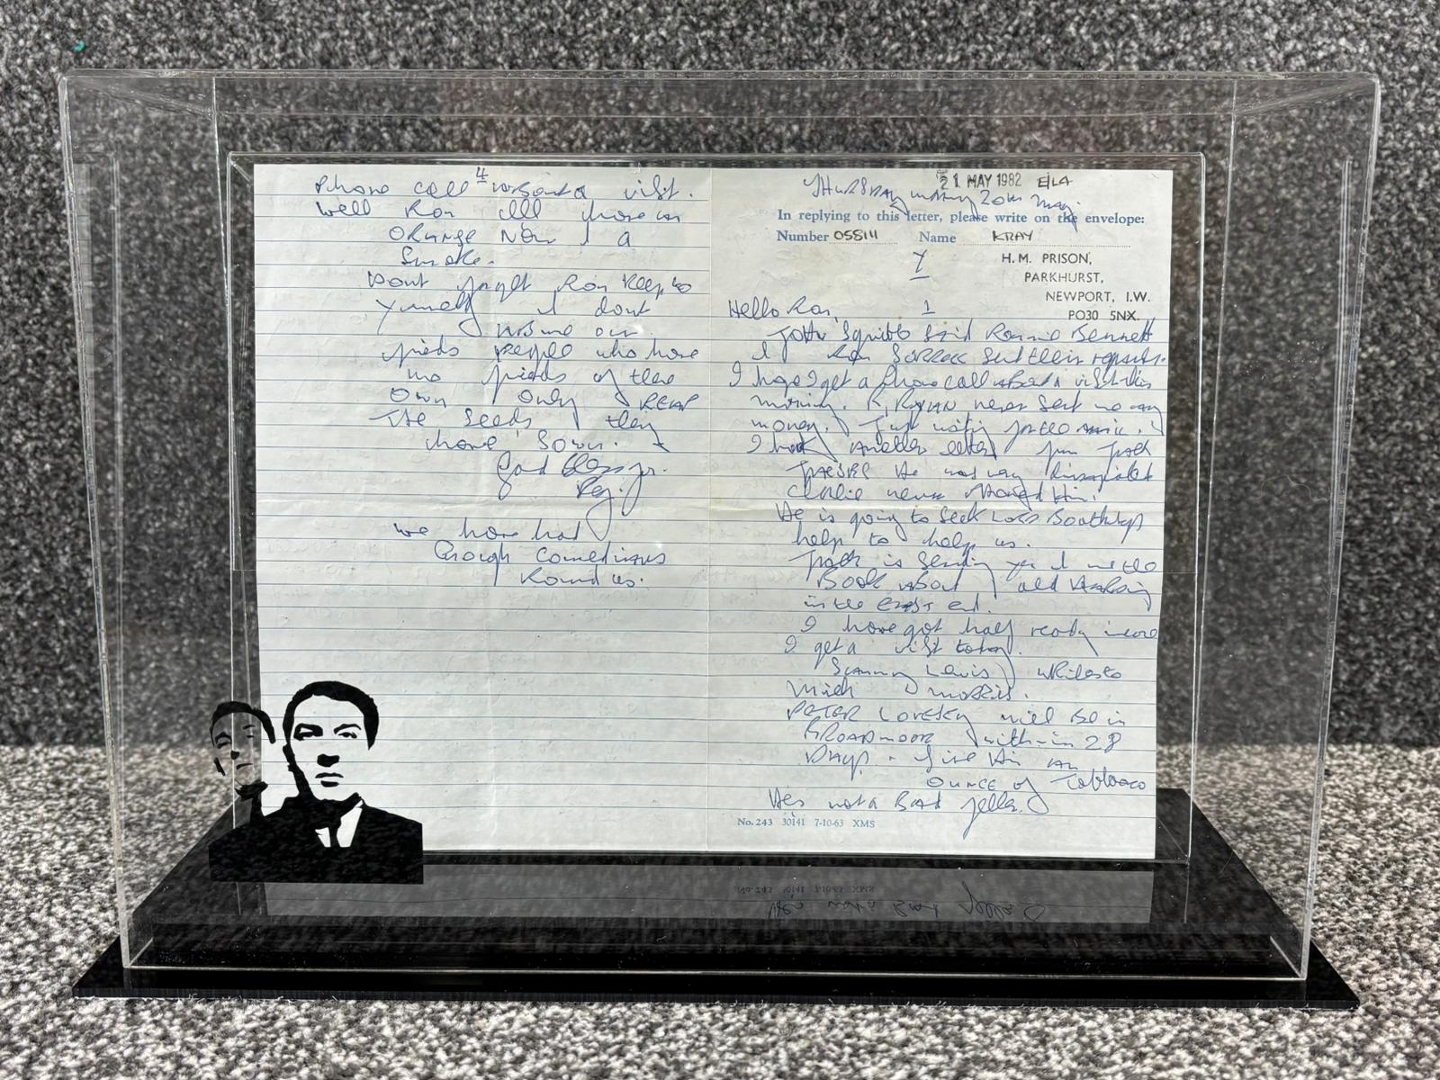 4
Phone call about a visit.
Well Ron I'll have an
Orange Now & a
Smoke.
Dont forget Ron Keep to
yourself & dont
people who have
no friends of their
Own & Only REAP
The Seeds they
have Sown.
God Bless
Reg.
we have had
Enough Comedians
Round us.
21 MAY 1982 E/LA
THURSDAY morning 20th May.
In replying to this letter, please write on the envelope:
Number 058111 Name KRAY
H. M. PRISON,
PARKHURST,
NEWPORT, I.W.
PO30 5NX.
1
Hello Ron,
John Squibb Said Ronnie Bennett
& Ron Sent their regards.
I hope I get a phone call about a visit this
morning. R. RYAN never Sent me any
money. Just waiting for the
I had Another letter from
He was very
Charlie never him.
He is going to Seek Lord Boothbys
help to help us.
is Sending you & me the
Book About old
in the East end.
I have got half ready incase
I get a visit today.
Sammy Lewis writes to
Mick Morris.
PETER will Be in
BROADMOOR within 28
Days. Give him an
Ounce of Tobbaco
He's not a Bad fella.
No. 243 30141 7-10-63 XMS